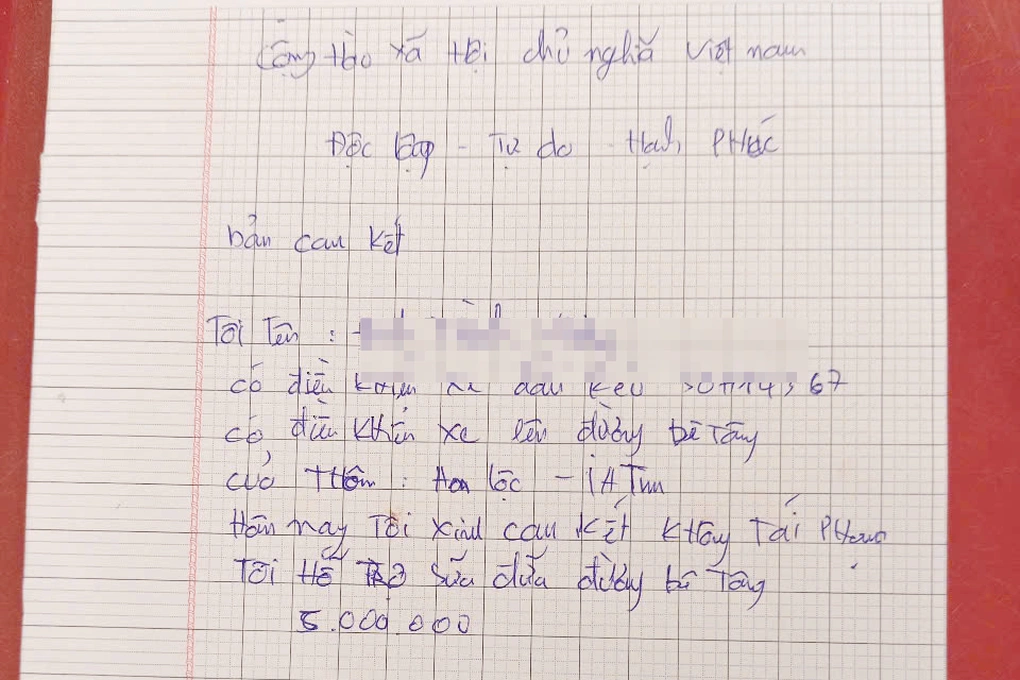 Cộng Hào xã Hội chủ nghĩa việt nam
Độc lập - Tự do - Hạnh PHúc
bản cau kết
Tôi Tên :
có điều 67
có điều KHiển xe lên đường bê Tông
củả THôn : Hoa lộc - iA Tim
Hôm nay Tôi xinh cau kết KHông Tái PHạm
Tôi Hổ Trợ sữa đữa đường bê Tông
5.000.000